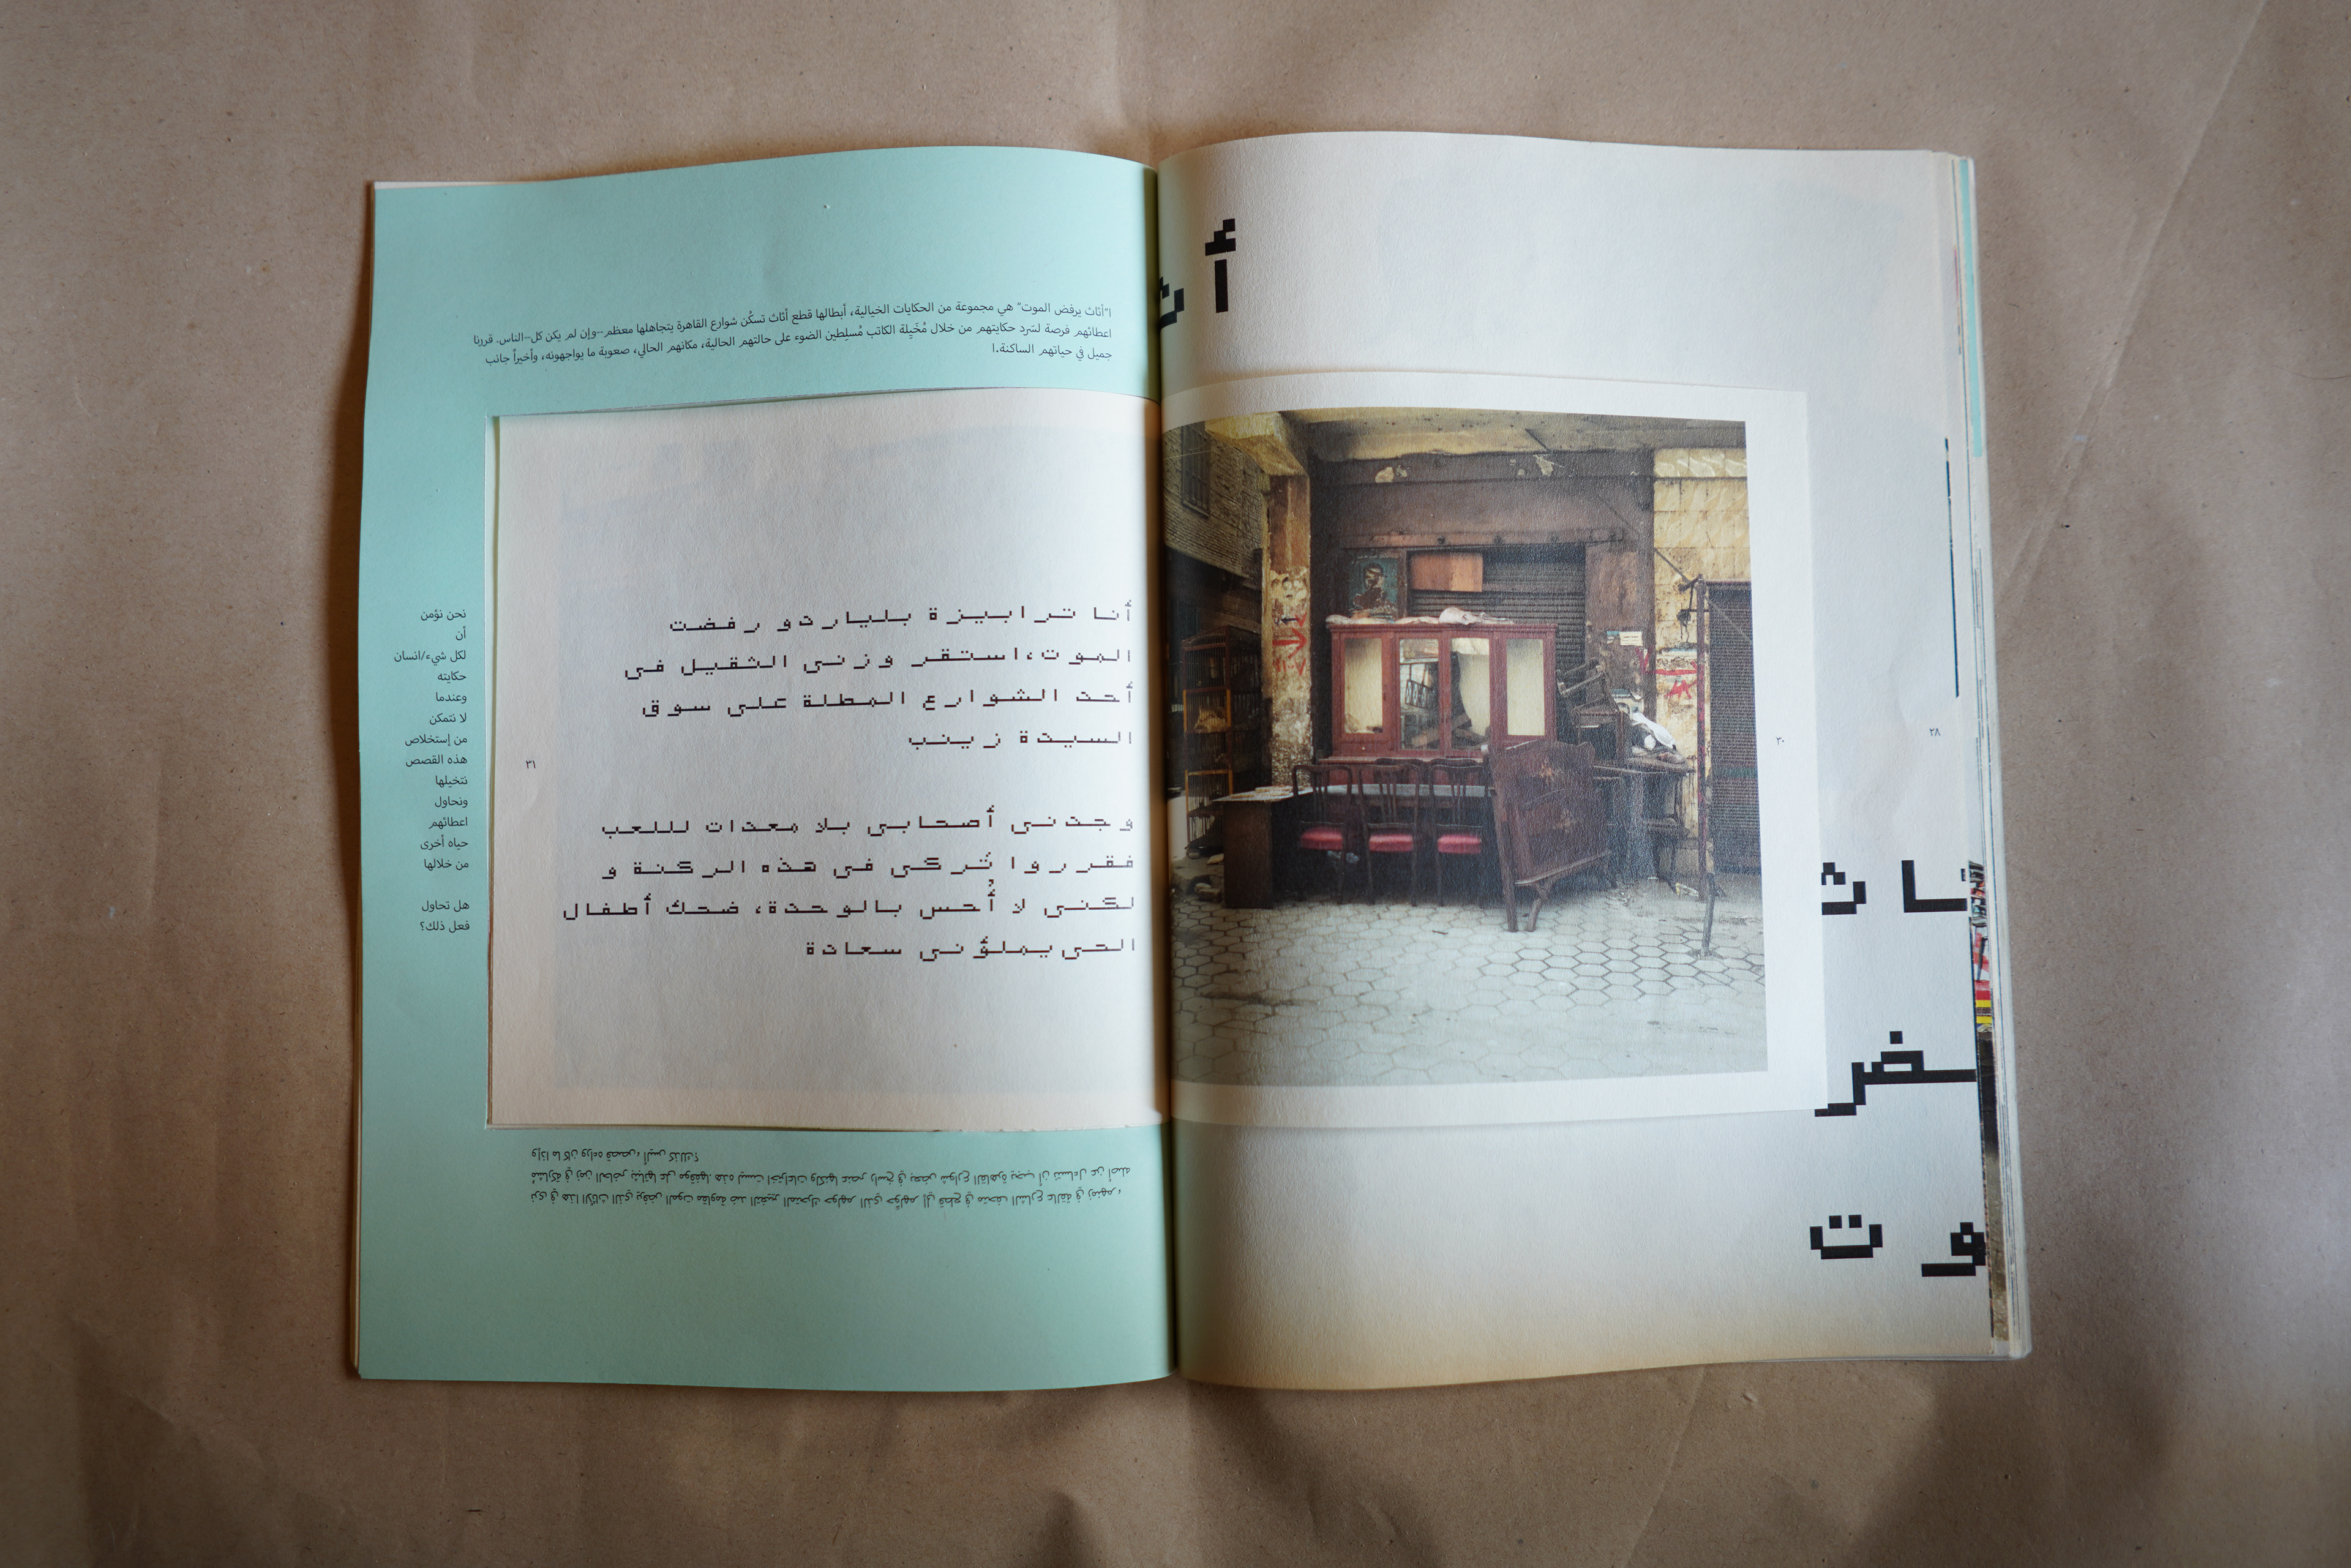 أث
ـاث
ـضر
وت
٢٨
٣٠
ا"أثاث يرفض الموت" هي مجموعة من الحكايات الخيالية، أبطالها قطع أثاث تسكُن شوارع القاهرة يتجاهلها معظم--وإن لم يكن كل--الناس. قررنا
اعطائهم فرصة لسَرد حكايتهم من خلال مُخَيِلة الكاتب مُسلِطين الضوء على حالتهم الحالية، مكانهم الحالي، صعوبة ما يواجهونه، وأخيراً جانب
جميل في حياتهم الساكنة.ا
أنا ترابيزة بلياردو رفضت
الموت،استقر وزني الثقيل في
أحد الشوارع المطلة على سوق
السيدة زينب
وجدني أصحابي بلا معدات لللعب
فقرروا تَركي في هذه الركنة و
لكني لا أُحس بالوحدة، ضحك أطفال
الحي يملؤني سعادة
٣١
نحن نؤمن
أن
لكل شيء/انسان
حكايته
وعندما
لا نتمكن
من إستخلاص
هذه القصص
نتخيلها
ونحاول
اعطائهم
حياه أخرى
من خلالها
هل تحاول
فعل ذلك؟